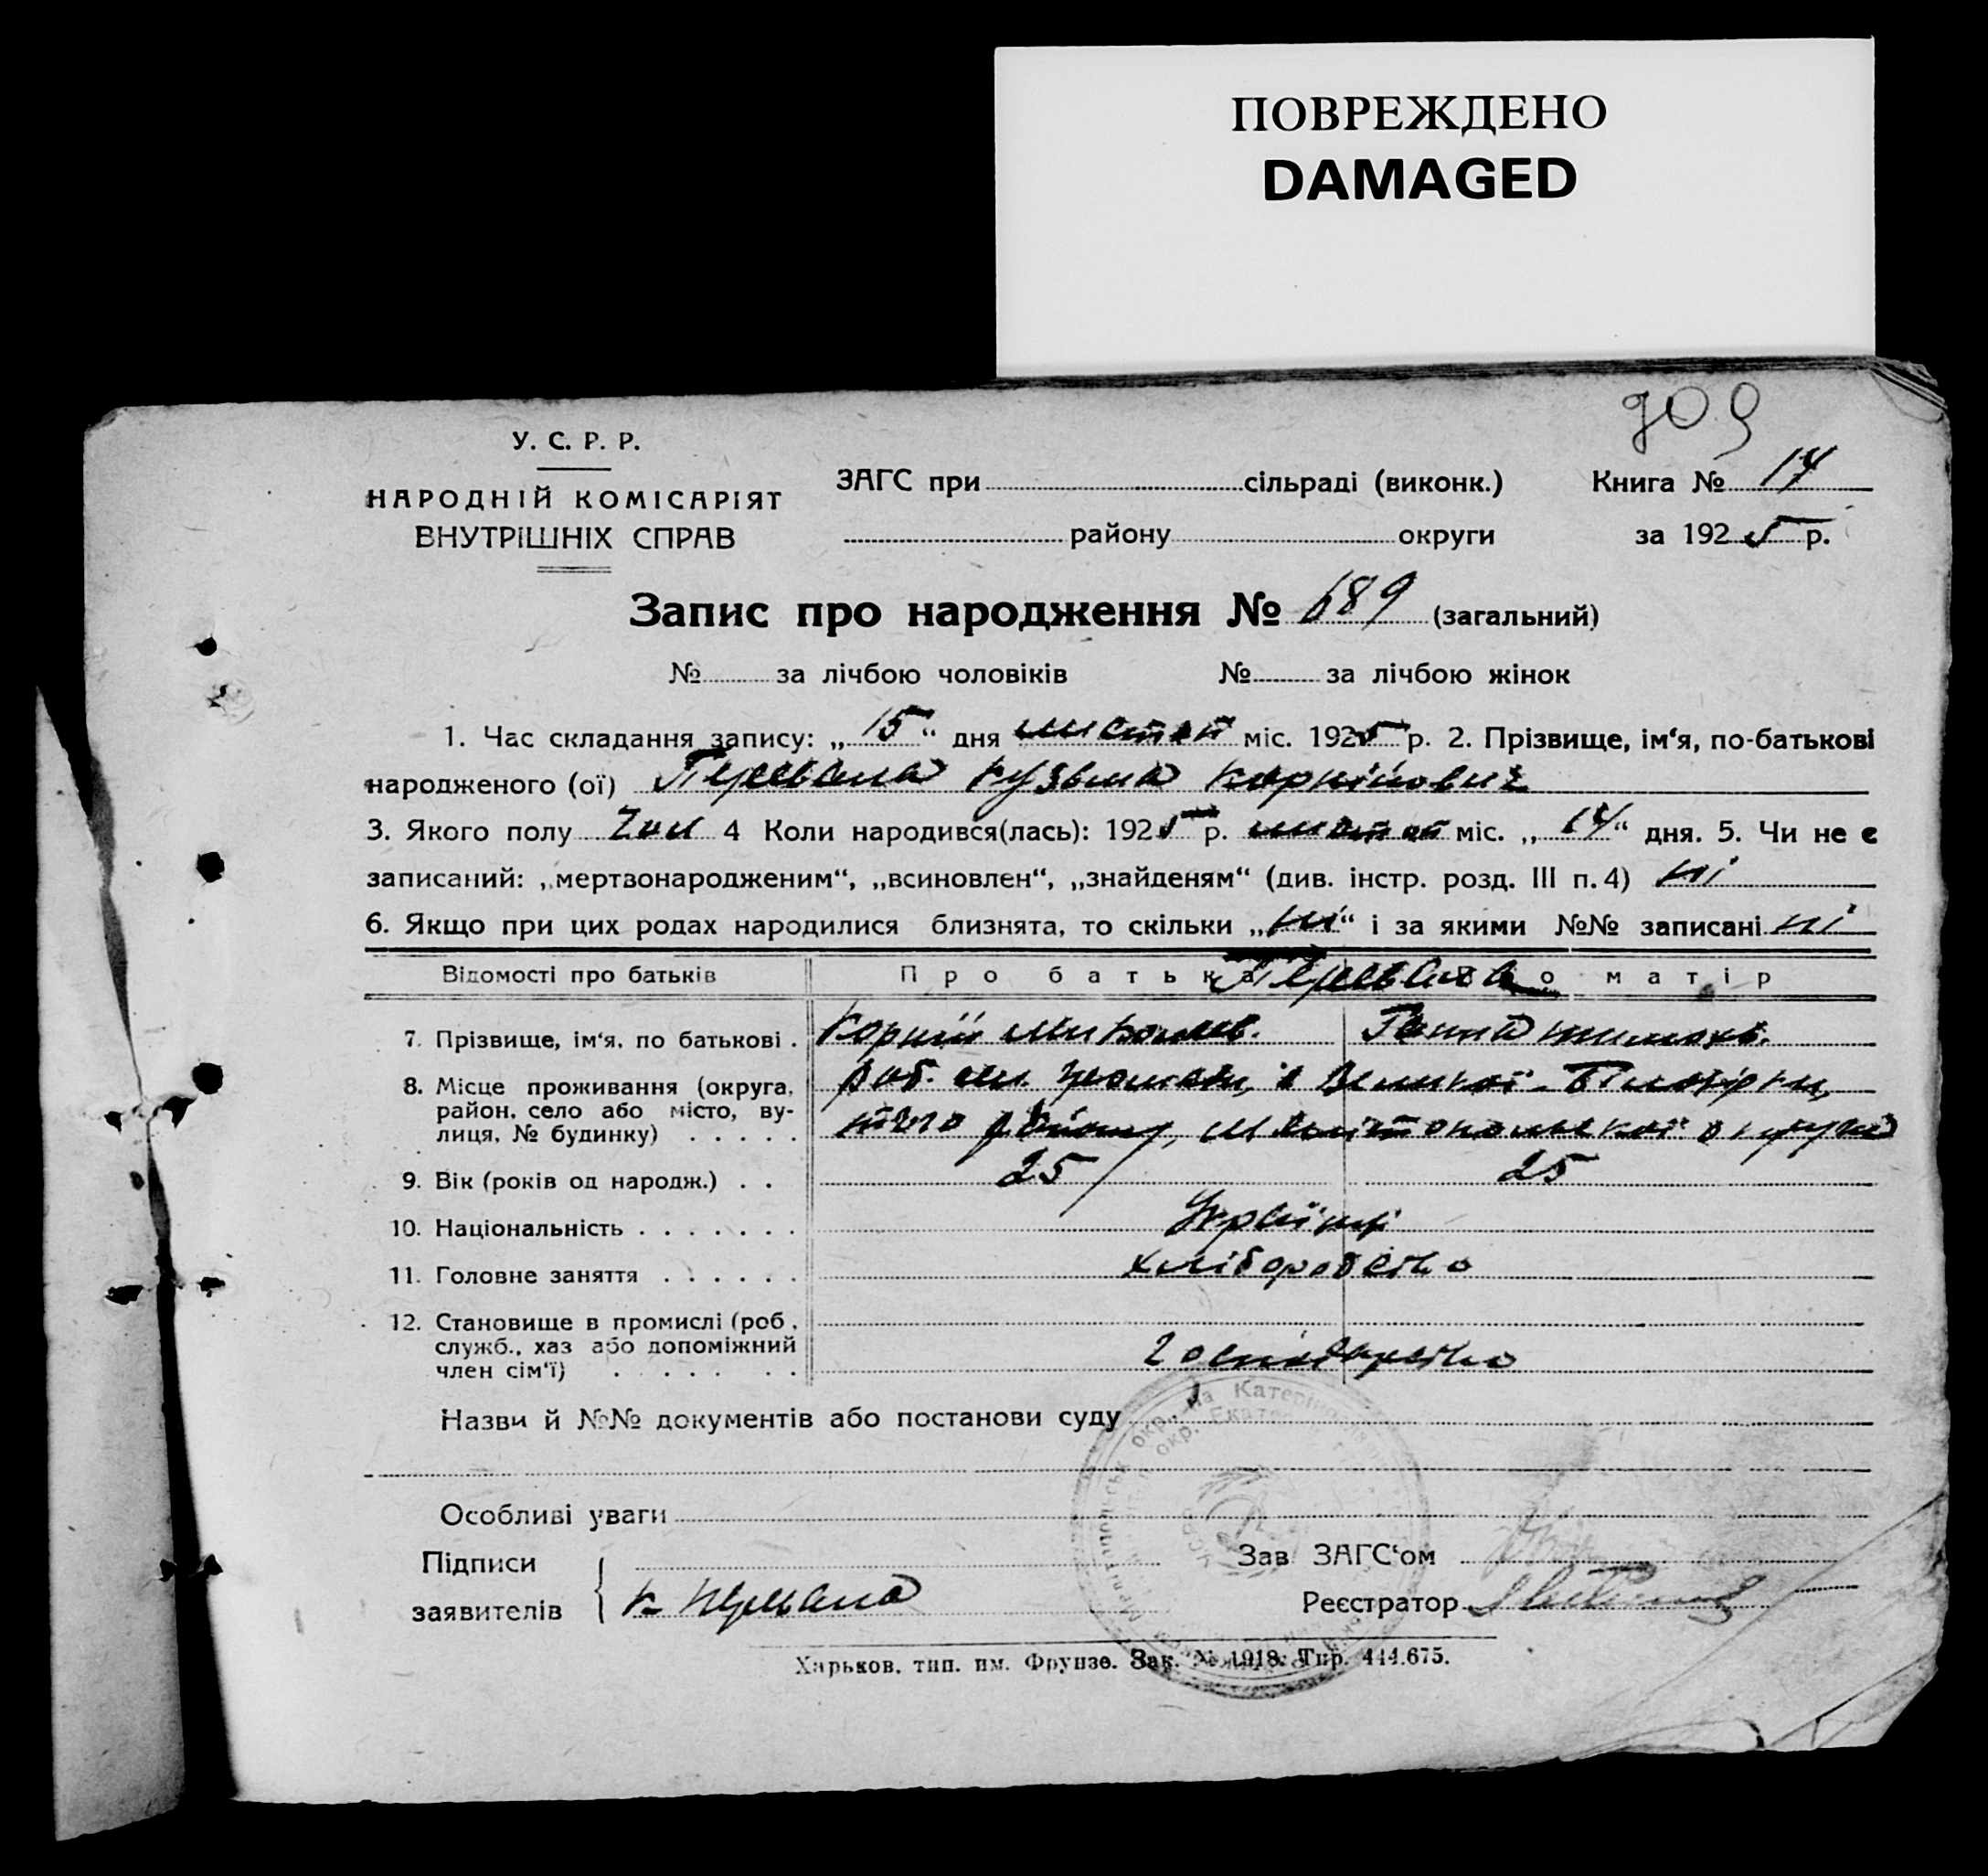 ПОВРЕЖДЕНО
DAMAGED
909
У. С. Р. Р.
НАРОДНІЙ КОМІСАРІЯТ
ВНУТРІШНІХ СПРАВ
ЗАГС при сільраді (виконк.)
району округи
Книга № 14
за 1925 р.
Запис про народження № 689 (загальний)
№ за лічбою чоловіків № за лічбою жінок
1. Час складання запису: „15“ дня листоп міс. 1925 р. 2. Прізвище, ім‘я, по-батькові
народженого (ої) Перевала Кузьма Корнійович
3. Якого полу чол 4 Коли народився(лась): 1925 р. листоп міс. „14“ дня. 5. Чи не є
записаний: „мертвонародженим“, „всиновлен“, „знайденям“ (див. інстр. розд. III п. 4) ні
6. Якщо при цих родах народилися близнята, то скільки „ні“ і за якими №№ записані ні
Відомості про батьків Про батька Перевала Про матір
7. Прізвище, ім‘я, по батькові . Корній Миколов. Ганна Тимохв.
8. Місце проживання (округа, район, село або місто, вулиця, № будинку) . . . . . Великої-Білозірки,
того району, Мелітопольської округи
9. Вік (років од народж.) . . 25 25
10. Національність . . . . . . . Українці
11. Головне заняття . . . . . . хліборобство
12. Становище в промислі (роб.,
служб., хаз або допоміжний
член сім‘ї) . . . . . . . господарство
Назви й №№ документів або постанови суду
Особливі уваги
Підписи
заявителів К Перевала
Зав ЗАГС‘ом
Реєстратор
Харьков. тип. им. Фрунзе. Зак. № 1918. Тир. 444.675.